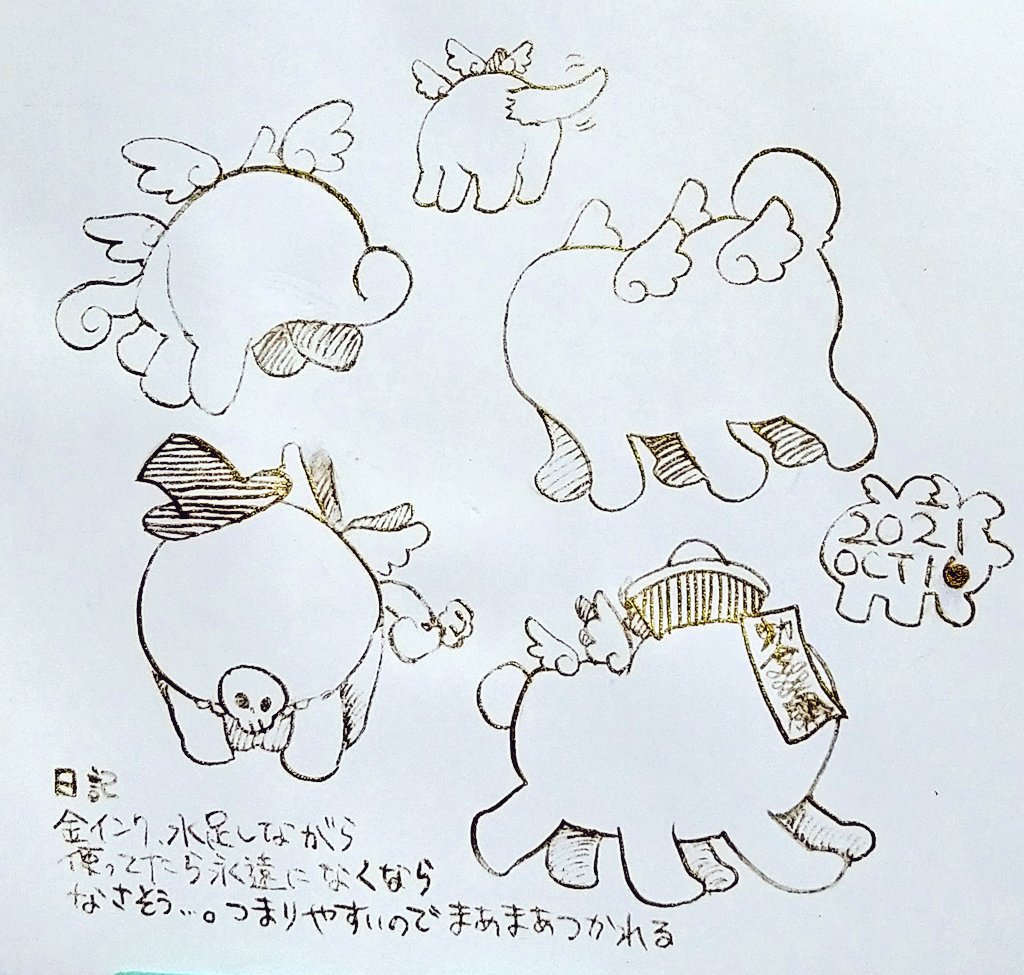 2021
OCT16
日記
金インク、水足しながら
使ってたら永遠になくなら
なさそう…。つまりやすいのでまあまあつかれる